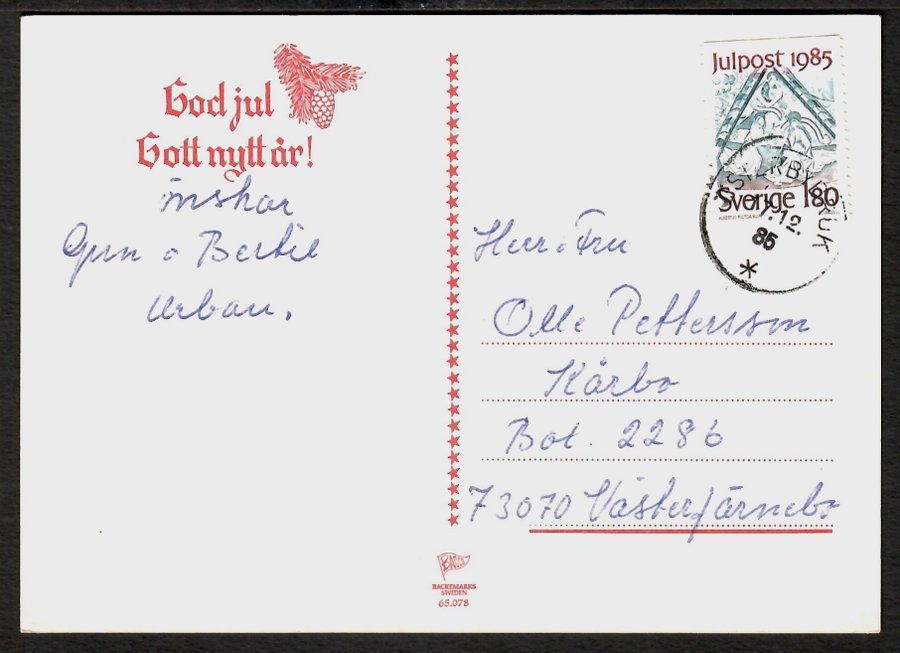 God jul
Gott nytt år!
önskar
Gun o Bertil
Urban.
Julpost 1985
Sverige 180
ÖSTERBYBRUK
12.
85
*
Herr o Fru
Olle Pettersson
Kårbo
Box 2286
73070 Västerfärnebo
BACKEMARKS
SWEDEN
65.078